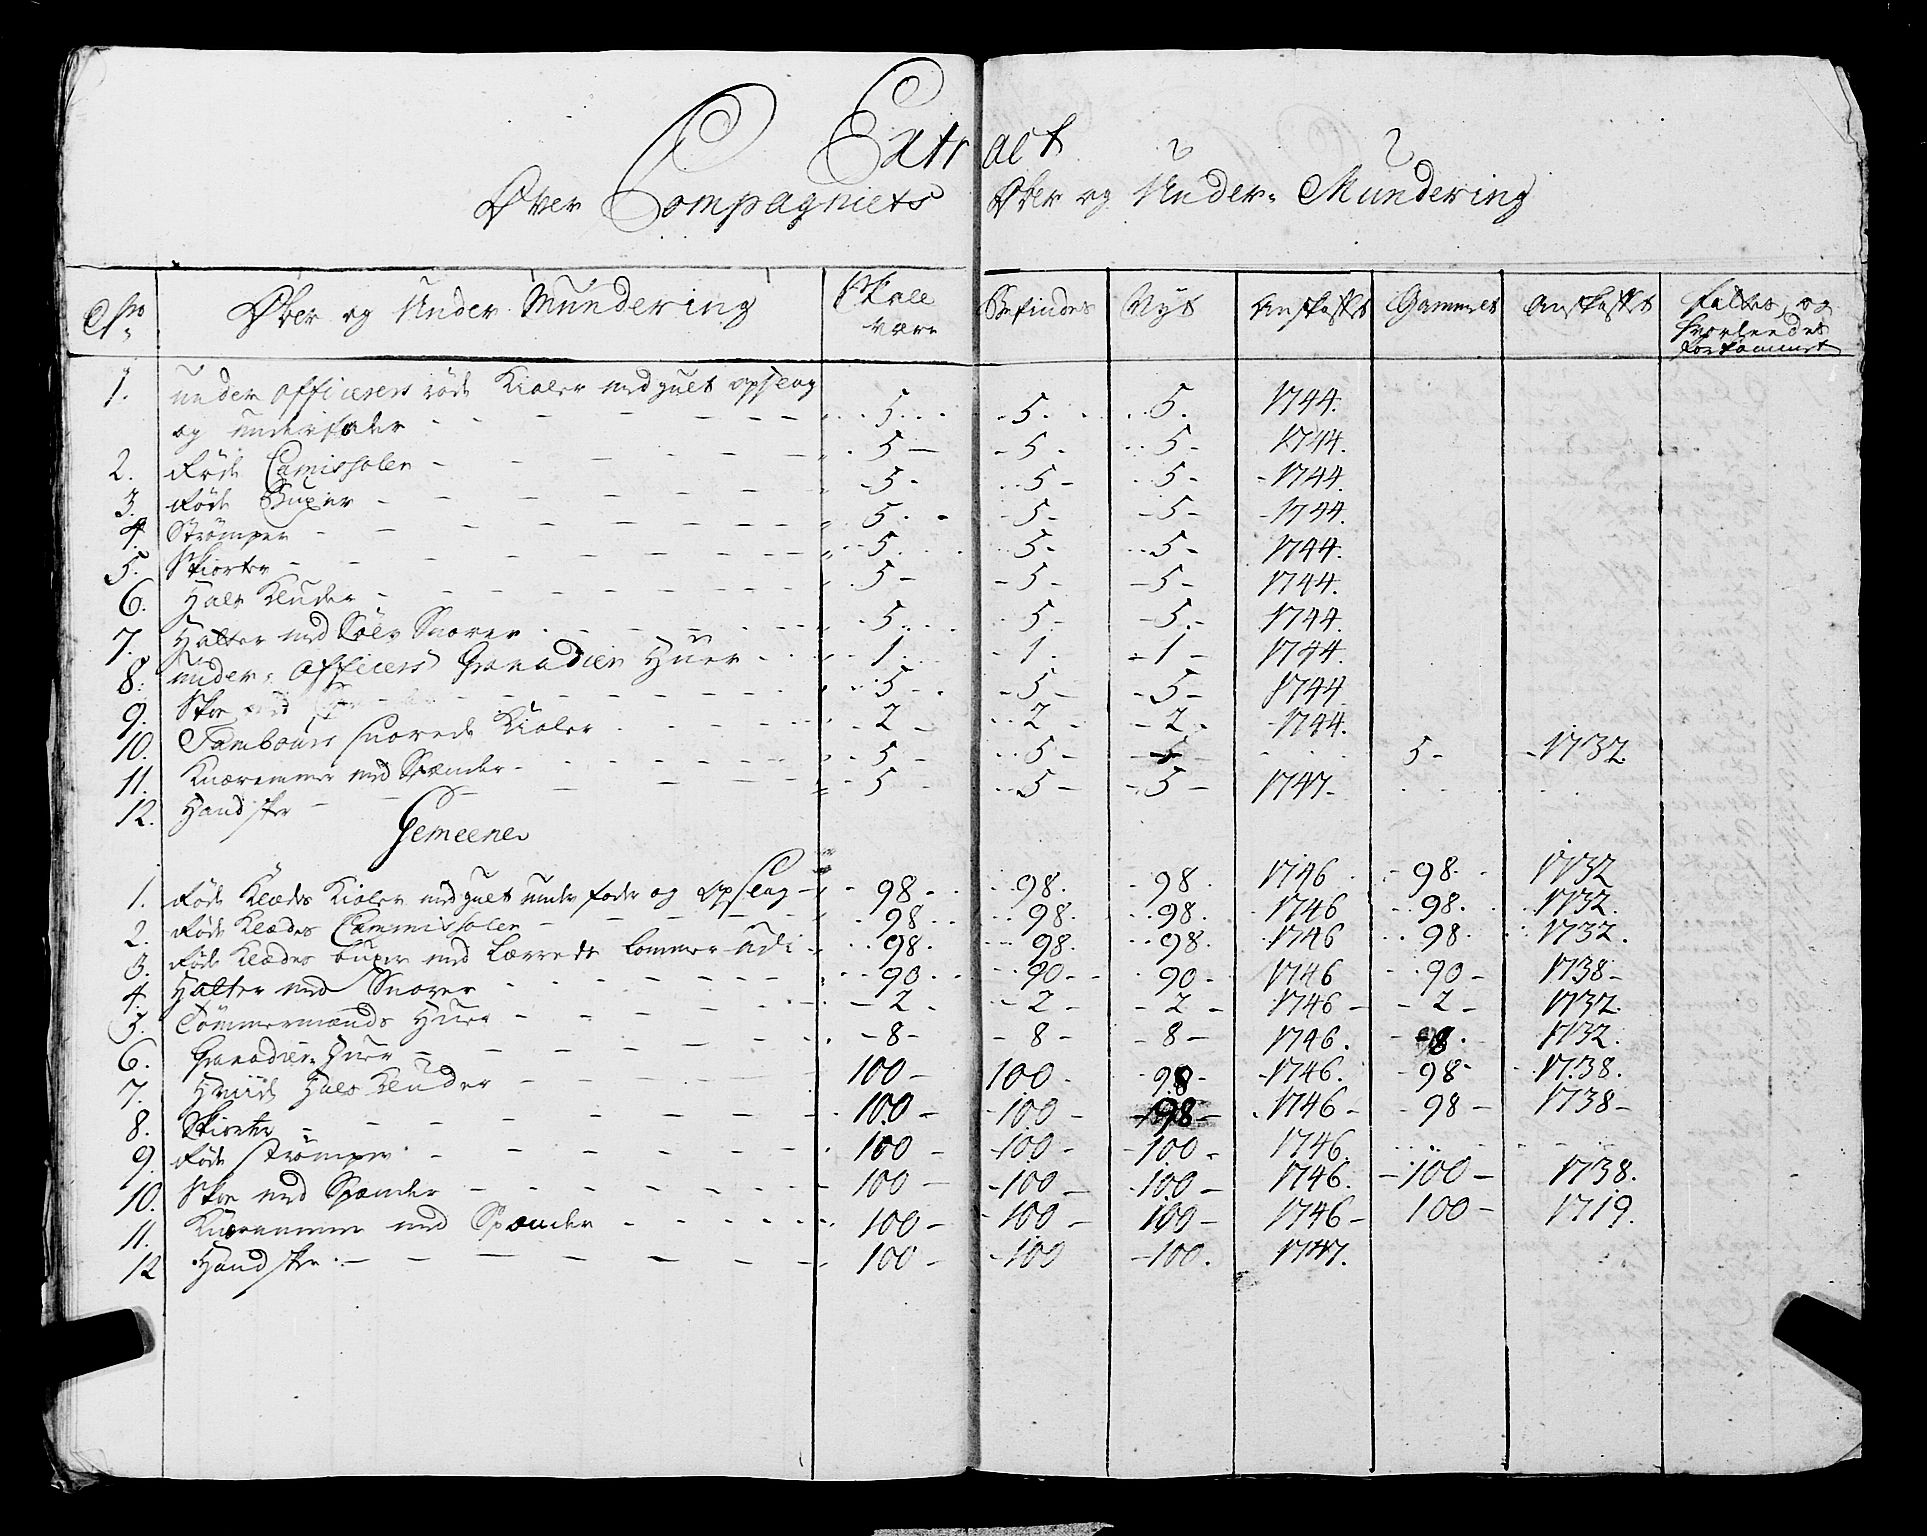 Extract
Over Compagniets Ober og Under Mundering
No Ober og Under Mundering Skall være Befindes Nyt Anskaffet Gammelt Anskaffet fattes og hvorleedes forkommet
1. under officerers röde Kioler med gult opslag
og underfoder 5 5 5 1744.
2. Röde Camisoler 5 5 5 1744.
3. Röde Buxer 5 5 5 1744.
4. Strömper 5 5 5 1744.
5. Skiorter 5 5 5 1744.
6. Hals Kluder 5 5 5 1744.
7. Hatter med Sölv Snorer 5 5 5 1744.
8. under officers Granadeer Huer 1 1 1 1744.
9. Skoe med 5 5 5 1744
10. Tambours snorede Kioler 2 2 2 1744.
11. Knæremmer med Spænder 5 5 5 5 1732.
12. Handsker 5 5 5 1747
Gemeene
1. Röde Klædes Kioler med gult under foder og opslag 98 98 98 1746 98 1732
2. Röde Klædes Cammisoler 98 98 98 1746 98 1732.
3. Röde Klædes buxer med Lærreds Lommer udi 98 98 98 1746 98 1732.
4. Hatter med Snorer 90 90 90 1746 90 1738
5. Tömmermænds Huer 2 2 2 1746 2 1732.
6. Granadeer Huer 8 8 8 1746. 8 1732.
7. Hviide Hals Kluder 100 100 98 1746. 98 1738.
8. Skiorter 100 100 98 1746 98 1738
9. Röde Strömper 100 100 100 1746.
10. Skoe med Spænder 100 100 100 1746. 100 1738.
11. Knæremmer med Spænder 100 100 100 1746 100 1719.
12 Handsker 100 100 100. 1747.